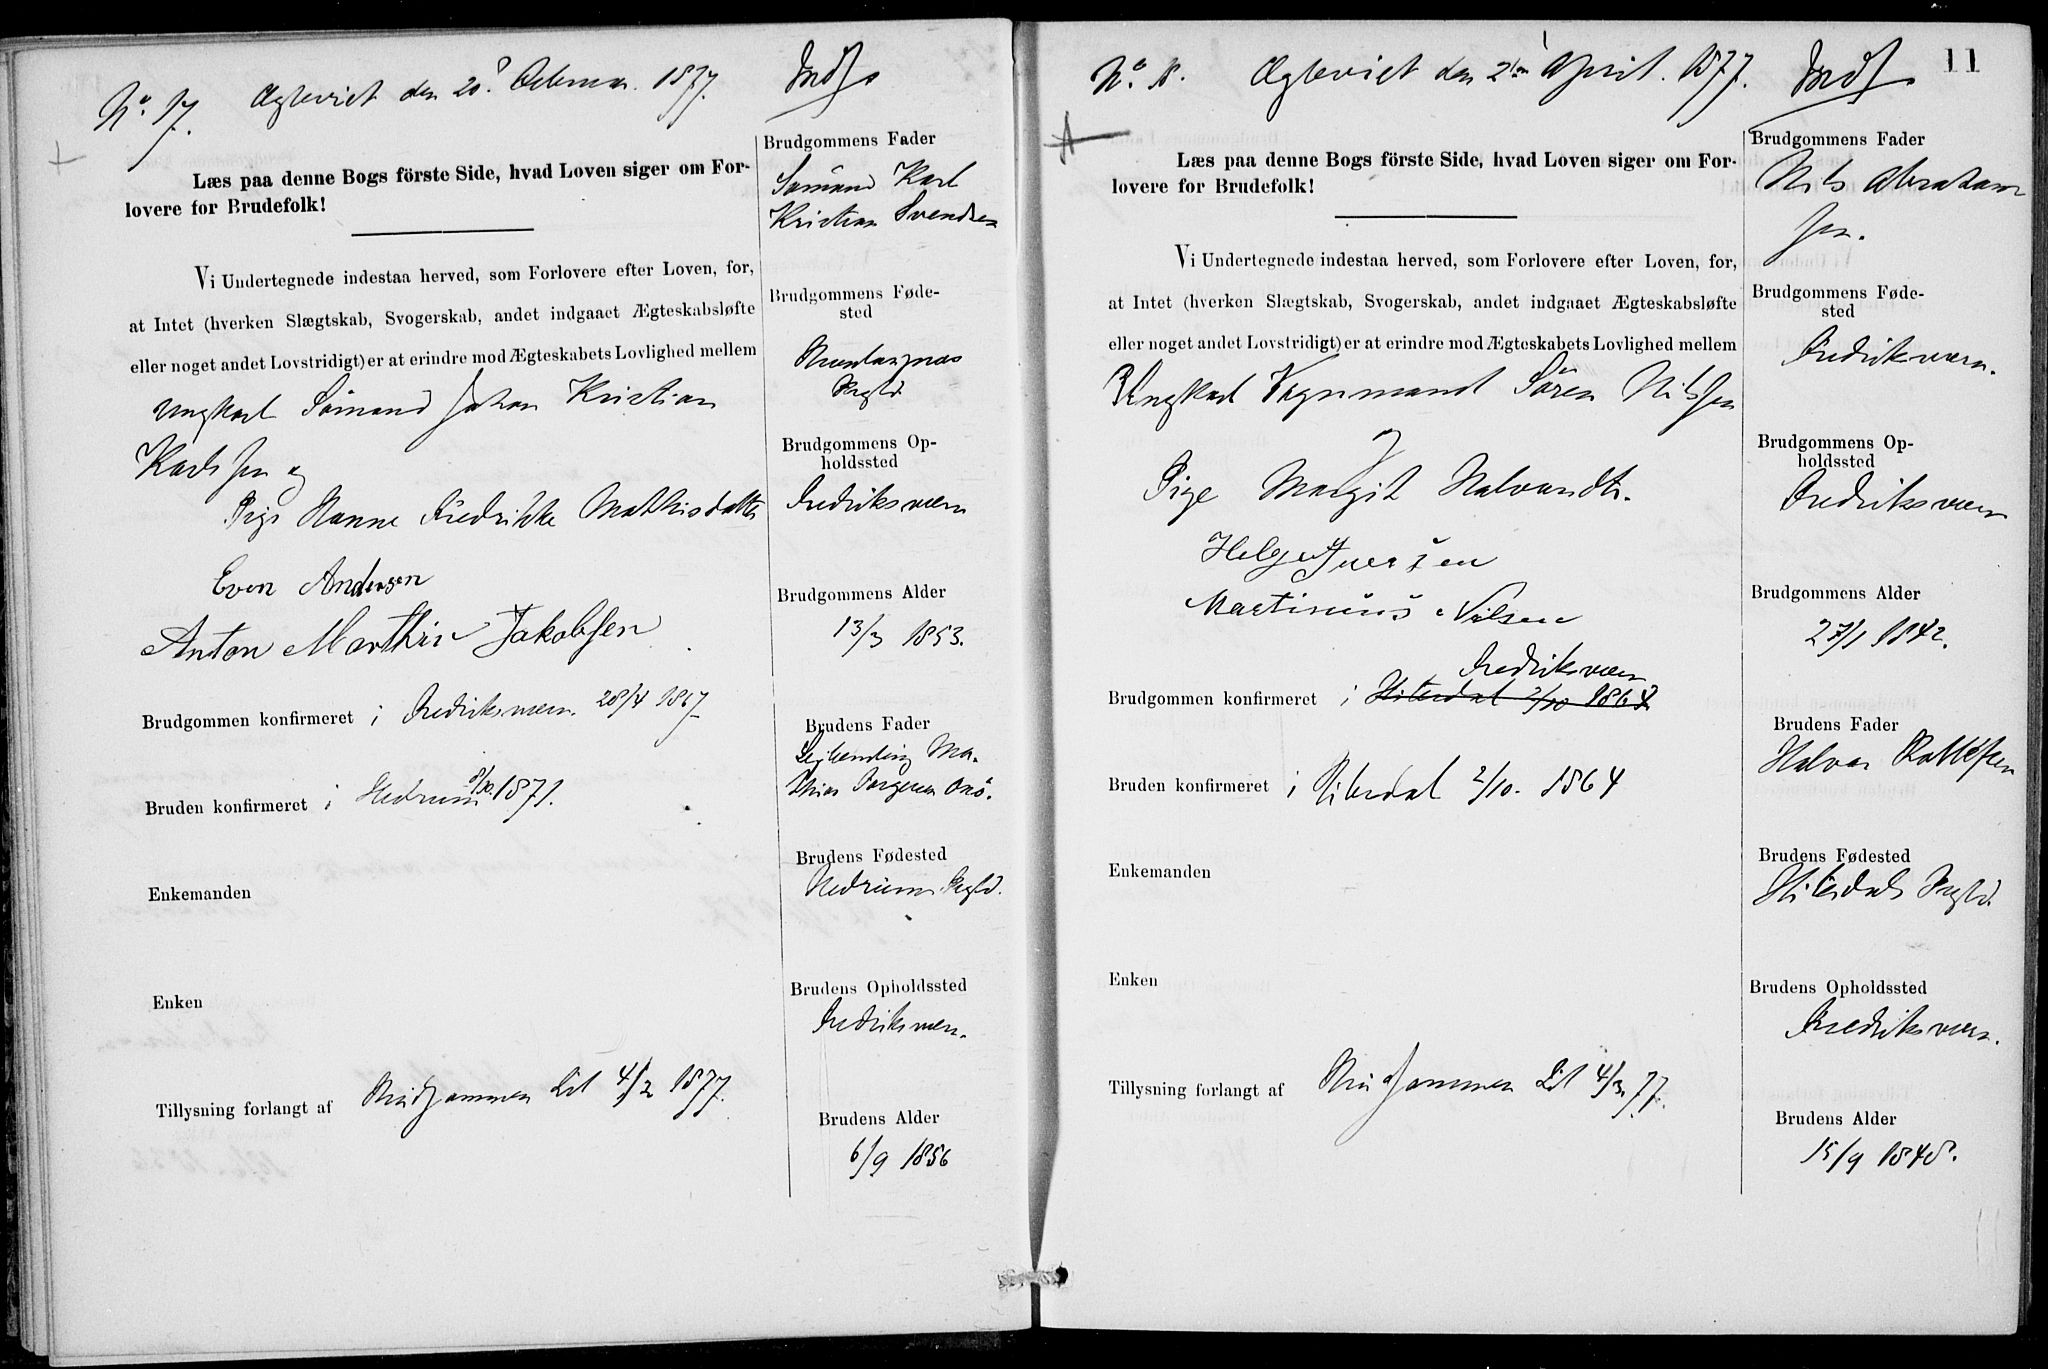 No. 17. Ægteviet den 20. Februar 1877. Indf.
Læs paa denne Bogs förste Side, hvad Loven siger om For-
lovere for Brudefolk!
Vi Undertegnede indestaa herved, som Forlovere efter Loven, for,
at Intet (hverken Slægtskab, Svogerskab, andet indgaaet Ægteskabsløfte
eller noget andet Lovstridigt) er at erindre mod Ægteskabets Lovlighed mellem
Ungkarl Sömand Johan Kristian
Karlsen og
Pige Hanne Fredrikke Mathisdatter
Even Andersen
Anton Marthin Jakobsen
Brudgommen konfirmeret i Fredriksværn 28/4 1867
Bruden konfirmeret i Hedrum 8/10 1871.
Enkemanden
Enken
Tillysning forlangt af Brudgommen Lit 4/2 1877.
Brudgommens Fader
Sömand Karl
Kristian Svendsen
Brudgommens Føde-
sted
Prgld.
Brudgommens Op-
holdssted
Fredriksværn
Brudgommens Alder
13/3 1853.
Brudens Fader
Leilending Ma-
thias
Brudens Fødested
Hedrum Prgld.
Brudens Opholdssted
Fredriksværn.
Brudens Alder
6/9 1856
11
Ægteviet den 2den April 1877. Indf.
Læs paa denne Bogs förste Side, hvad Loven siger om For-
lovere for Brudefolk!
Vi Undertegnede indestaa herved, som Forlovere efter Loven, for,
at Intet (hverken Slægtskab, Svogerskab, andet indgaaet Ægteskabsløfte
eller noget andet Lovstridigt) er at erindre mod Ægteskabets Lovlighed mellem
Ungkarl Vognmand Sören Nilssen
og
Pige Margit Halvorsdtr.
Helge Iversen
Martinius Nilsen
Fredriksværn
Brudgommen konfirmeret i Hiterdal 2/10 1864
Bruden konfirmeret i Hiterdal 2/10. 1864
Enkemanden
Enken
Tillysning forlangt af Brudgommen Lit 4/3. 77.
Brudgommens Fader
Nils Abraham
sen.
Brudgommens Føde-
sted
Fredriksværn.
Brudgommens Op-
holdssted
Fredriksværn
Brudgommens Alder
27/1 1842.
Brudens Fader
Halvor
Brudens Fødested
Hiterdals Prgld.
Brudens Opholdssted
Fredriksværn.
Brudens Alder
15/9 1848.